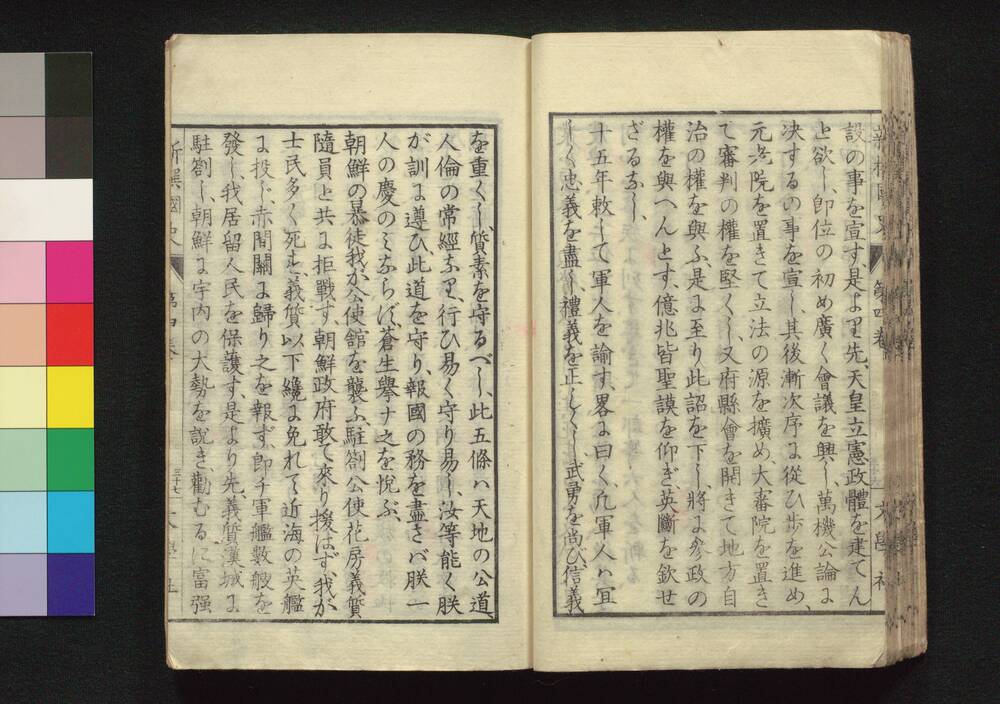 設の事を宣す、是より先、天皇立憲政體を建てん
と欲し、卽位の初め廣く會議を興し、萬機公論に
決するの事を宣し、其後漸次序に從ひ歩を進め、
元老院を置きて立法の源を擴め、大審院を置き
て審判の權を堅くし、又府縣會を開きて地方自
治の權を與ふ、是に至り此詔を下し、將に參政の
權を與へんとす、億兆皆聖謨を仰ぎ、英斷を欽せ
ざるなし、
十五年敕して軍人を諭す、畧に曰く凡軍人ハ宜
しく忠義を盡し、禮義を正しくし、武勇を尚び、信義
を重くし、質素を守るべし、此五條ハ天地の公道、
人倫の常經なり、行ひ易く守り易し、汝等能く朕
が訓に遵ひ此道を守り、報國の務を盡さバ朕一
人の慶のミならず、蒼生擧ナ之を悅ぶ、
朝鮮の暴徒我が公使館を襲ふ、駐劄公使花房義質
隨員と共に拒戰す、朝鮮政府敢て來り援はず、我が
士民多く死す、義質以下纔に免れて近海の英艦
に投じ、赤間關に歸り之を報ず、卽チ軍艦數艘を
發し、我居留人民を保護す、是より先、義質漢城に
駐劄し、朝鮮に宇内の大勢を說き、勸むるに富强
新撰國史
第四卷
三十七
文學社